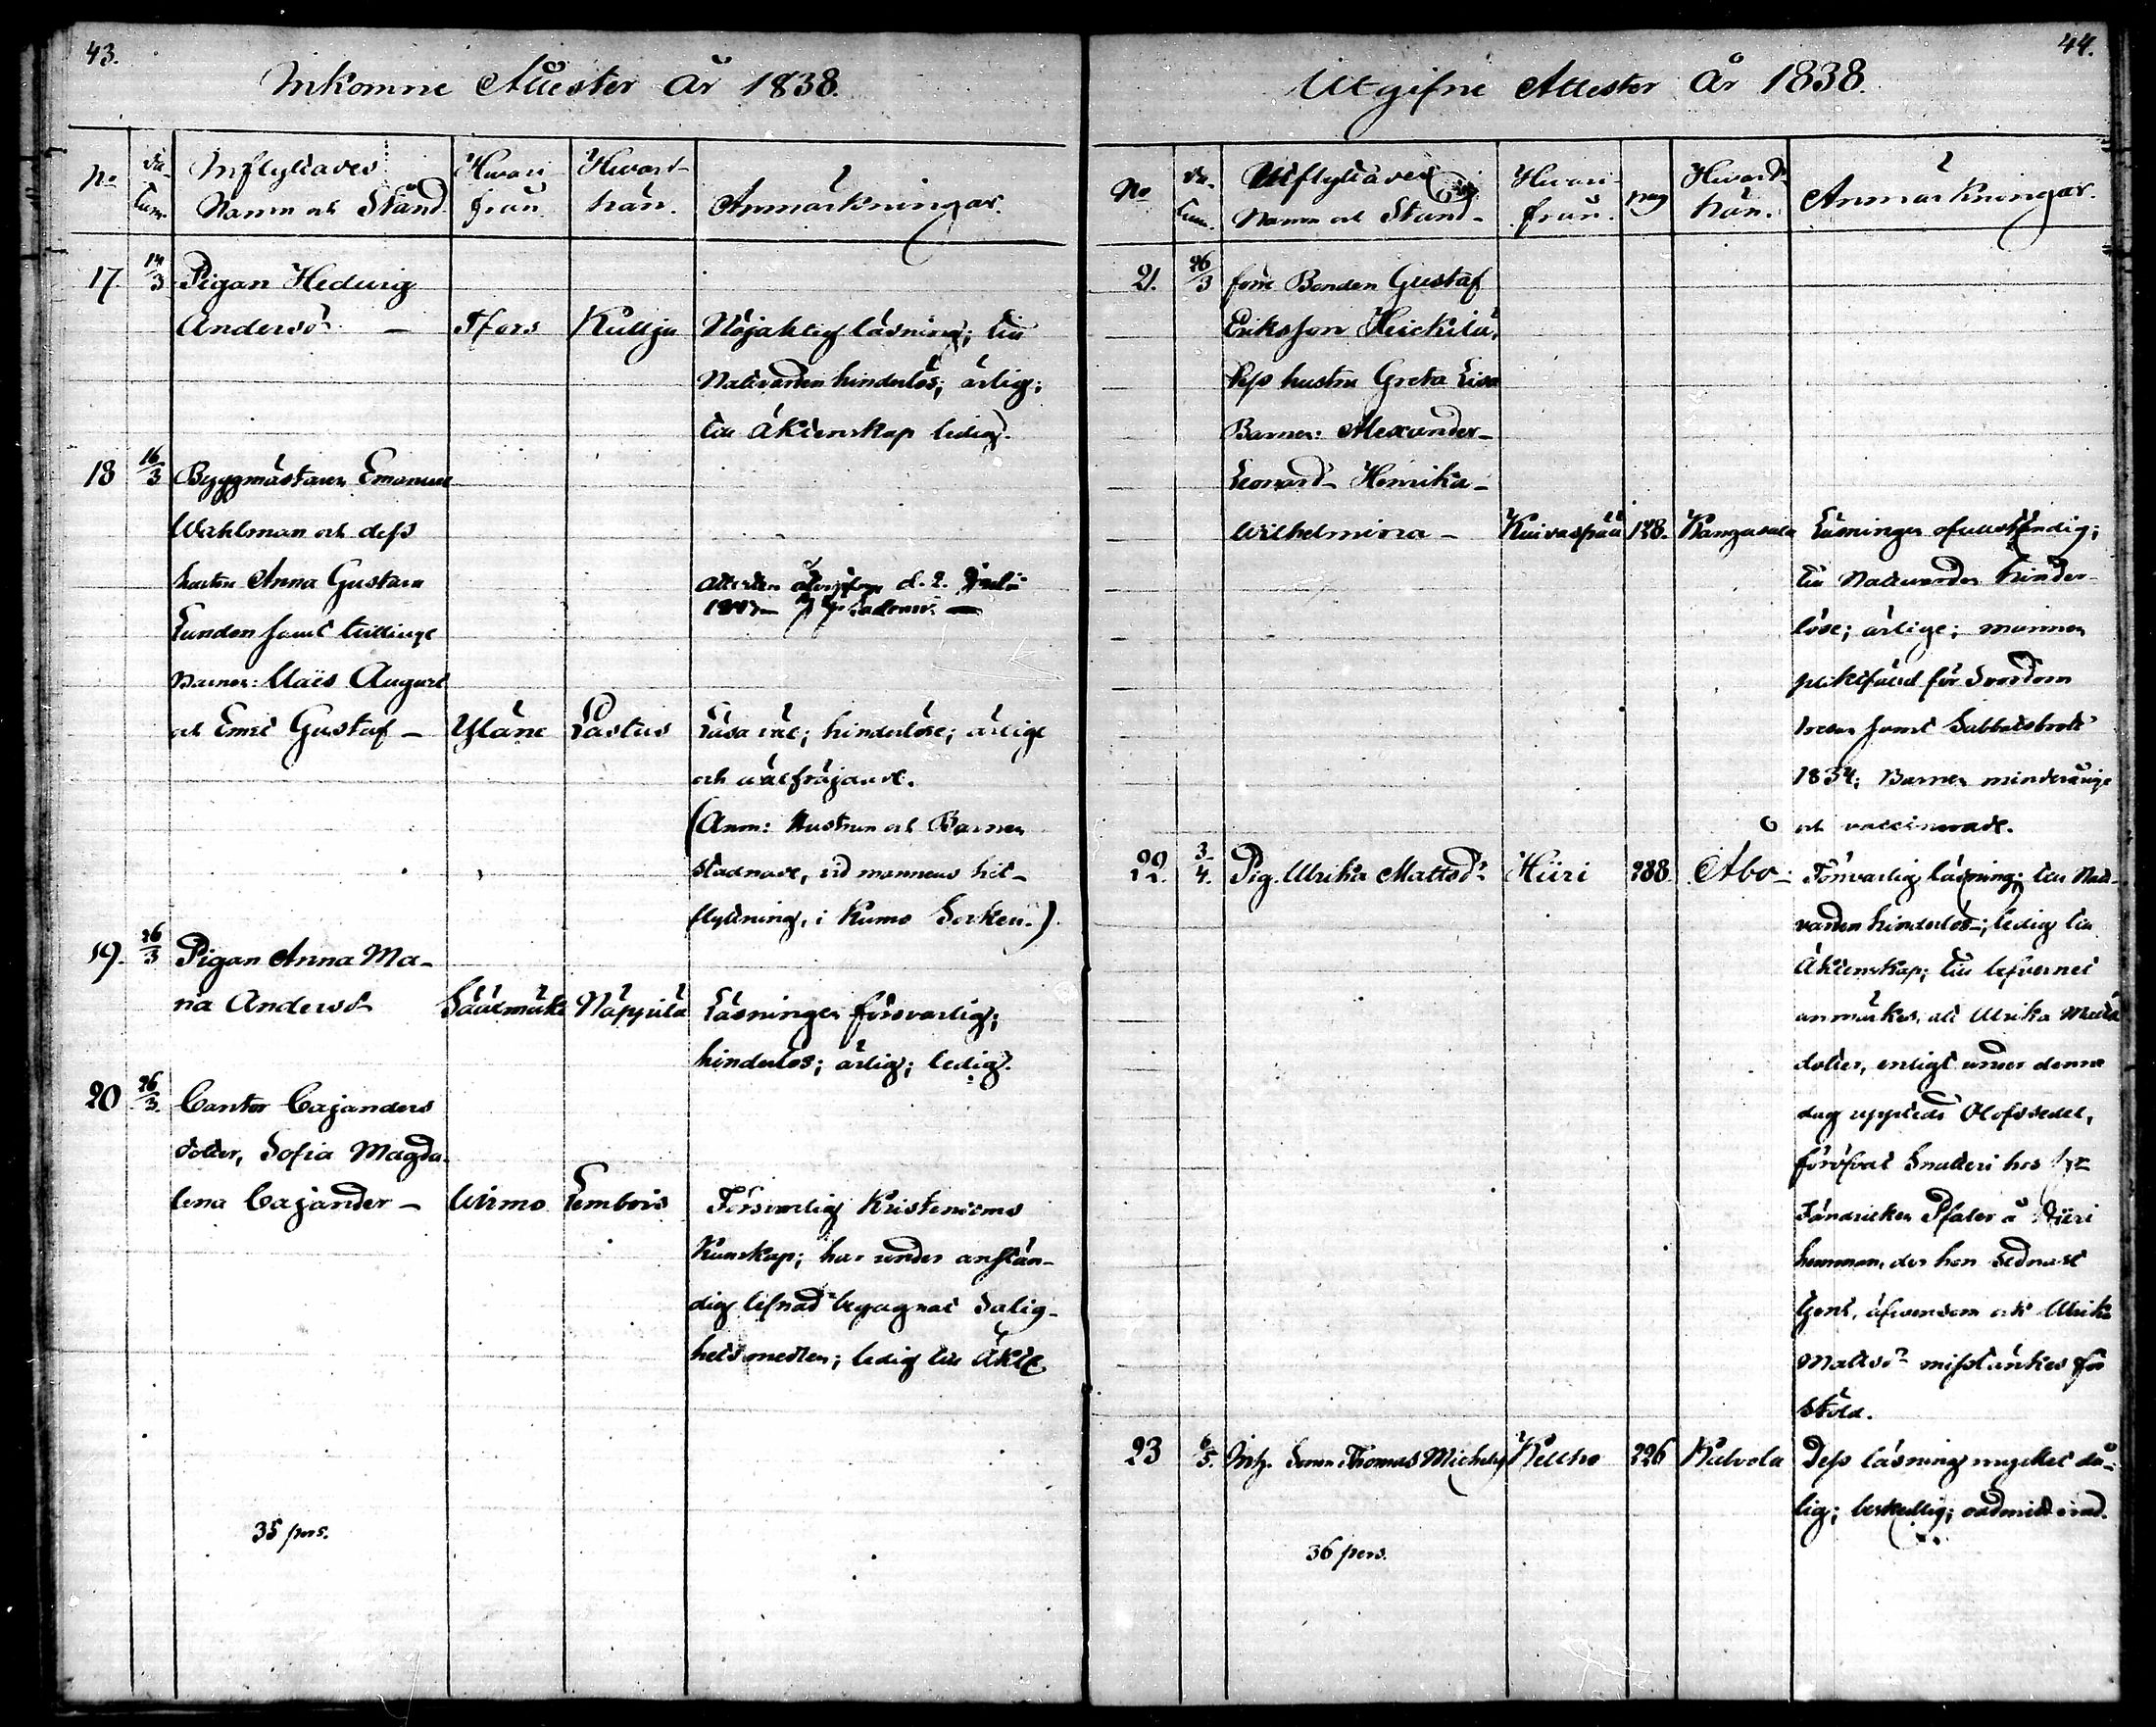 43.
Inkomne Attester År 1838.
No
Da-
tum.
Inflyttades
Namn och Stånd
Hvari-
från.
Hvart-
hän.
Anmärkningar.
17. 14/3 Pigan Hedvig
Andersd:r — Tfors Kullja Nöjaktig läsning; till
Nattvarden hinderlös; ärlig;
till Äktenskap ledig.
18 16/3 Byggmästaren Emanuel
Wahlman och dess
hustru Anna Gustava
Lunden samt tvillinge
Barnen: Claës August
och Emil Gustaf — Yläne Lastus Läsa väl; hinderlöse; ärlige
och välfräjdade.
Attesten d. 2. Julii
(Anm: Hustrun och Barnen
stadnade, vid mannens hit-
flyttning, i Kumo Socken.)
19. 26/3 Pigan Anna Ma-
ria Andersd:r Säätmäki Näppilä Läsningen försvarlig;
hinderlös; ärlig; ledig.
20 26/3. Cantor Cajanders
dotter, Sofia Magda-
lena Cajander — Wirmo Lembois Försvarlig Kristendoms
Kunskap; har under anstän-
dig lefnad begagnat Salig-
hetsmedlen; ledig till Äkte
35 pers.
44.
Utgifne Attester År 1838.
No
Da-
tum.
Utflyttades
Namn och Stånd
Hvari-
från.
pag
Hvart-
hän.
Anmärkningar.
21. 26/3 förre Bonden Gustaf
Eriksson Heickilä,
dess hustru Greta Lisa
Barnen: Alexander —
Leonard — Henrika —
Wilhelmina — Kuivaspää 128. Kangasala Läsningen ofullständig;
till Nattvarden hinder-
löse; ärlige; mannen
pliktfäld för Svordom
samt Sabbatsbrott
1834; Barnen minderårige
och vaccinerade.
22. 3/4. Pig. Ulrika Mattsd:r Hiiri 288 Åbo — Försvarlig läsning; till Natt-
varden hinderlös; ledig till
Äktenskap; till lefvernet
anmärkes, att Ulrika Matts
dotter, enligt under denna
dag uppteds Olofssedel,
föröfvat Snatteri hos
Fändricken Pfaler å Hiiri
hemman, der hon sednast
tjent, äfvensom ock Ulrika
Mattsd:r misstänkes för
Stöld.
23 6/5. Inh. Sonen Thomas Michelss Kellho 226 Kalvola Dess läsning mycket då-
lig; beskedlig; oadmitterad.
36 pers.